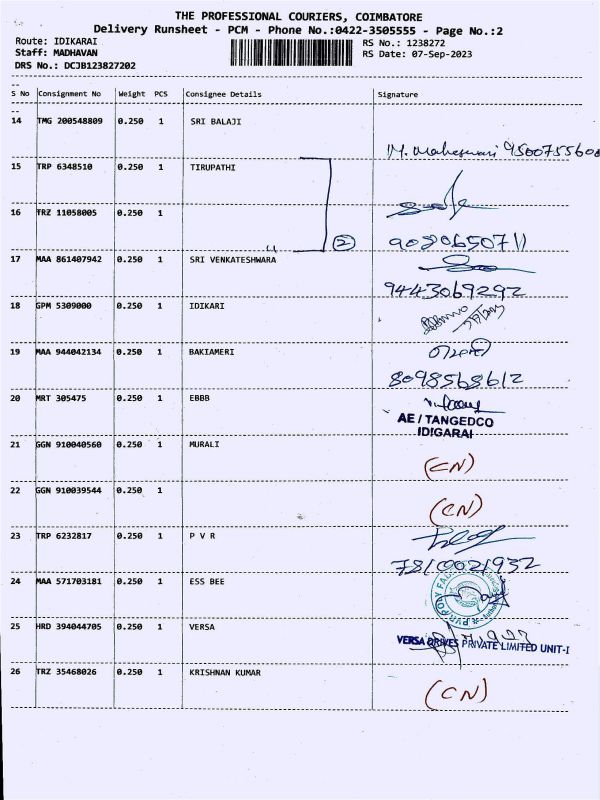 THE PROFESSIONAL COURIERS, COIMBATORE
Delivery Runsheet - PCM - Phone No.:0422-3505555 - Page No.:2
Route: IDIKARAI RS No.: 1238272
Staff: MADHAVAN RS Date: 07-Sep-2023
DRS No.: DCJB123827202
S No Consignment No Weight PCS Consignee Details Signature
14 TMG 200548809 0.250 1 SRI BALAJI
M. Maheswari 9500755608
15 TRP 6348510 0.250 1 TIRUPATHI
16 TRZ 11058005 0.250 1
2 9080650711
17 MAA 861407942 0.250 1 SRI VENKATESHWARA
9443069292
18 GPM 5309000 0.250 1 IDIKARI
19 MAA 944042134 0.250 1 BAKIAMERI
8098568612
20 MRT 305475 0.250 1 EBBB
AE / TANGEDCO
IDIGARAI
21 GGN 910040560 0.250 1 MURALI
(CN)
22 GGN 910039544 0.250 1
(CN)
23 TRP 6232817 0.250 1 P V R
7810021932
24 MAA 571703181 0.250 1 ESS BEE
25 HRD 394044705 0.250 1 VERSA
VERSA DRIVES PRIVATE LIMITED UNIT-I
26 TRZ 35468026 0.250 1 KRISHNAN KUMAR
(CN)